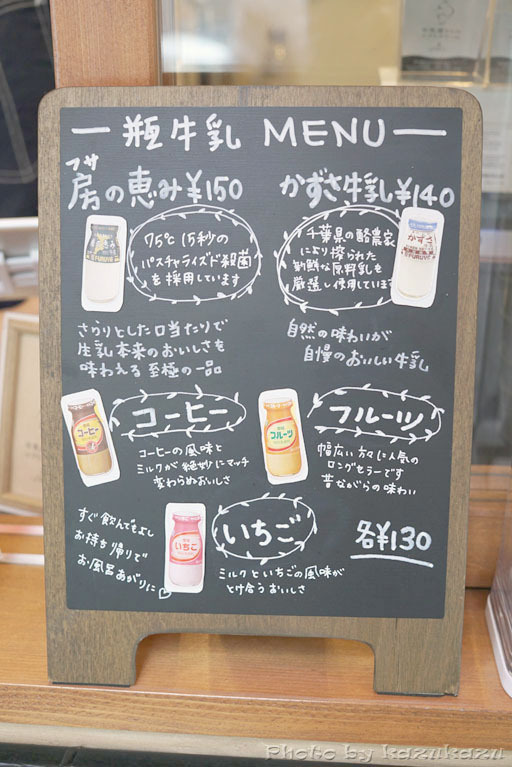 瓶牛乳 MENU
フサ
房の恵み¥150
かずさ牛乳¥140
75℃ 15秒の
パスチャライズド殺菌
を採用しています
千葉県の酪農家
により搾られた
新鮮な原料乳を
厳選し使用しています
かずさ
FURUYA
さらりとした口当たりで
生乳本来のおいしさを
味わえる至極の一品
自然の味わいが
自慢のおいしい牛乳
コーヒー
コーヒー
コーヒーの風味と
ミルクが絶妙にマッチ
変わらぬおいしさ
フルーツ
フルーツ
幅広い方々に人気の
ロングセラーです
昔ながらの味わい
すぐ飲んでもよし
お持ち帰りで
お風呂あがりに♡
いちご
いちご
ミルクといちごの風味が
とけ合うおいしさ
各¥130
Photo by kazukazu